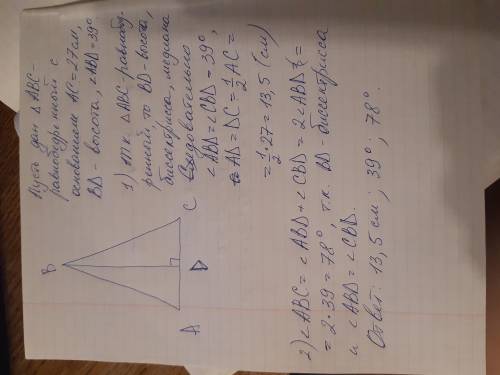 Пусть дан ΔABC -
равнобедренный с
основанием AC = 27 см,
BD - высота, ∠ABD = 39°
B
A
D
C
1) т.к. ΔABC - равнобед-
ренный, то BD - высота,
биссектриса, медиана
Следовательно
∠ABD = ∠CBD = 39°,
AD = DC = 1/2 AC =
= 1/2 · 27 = 13,5 (см)
2) ∠ABC = ∠ABD + ∠CBD = 2∠ABD =
= 2 · 39 = 78°, т.к. BD - биссектриса
и ∠ABD = ∠CBD.
Ответ: 13,5 см; 39°; 78°.